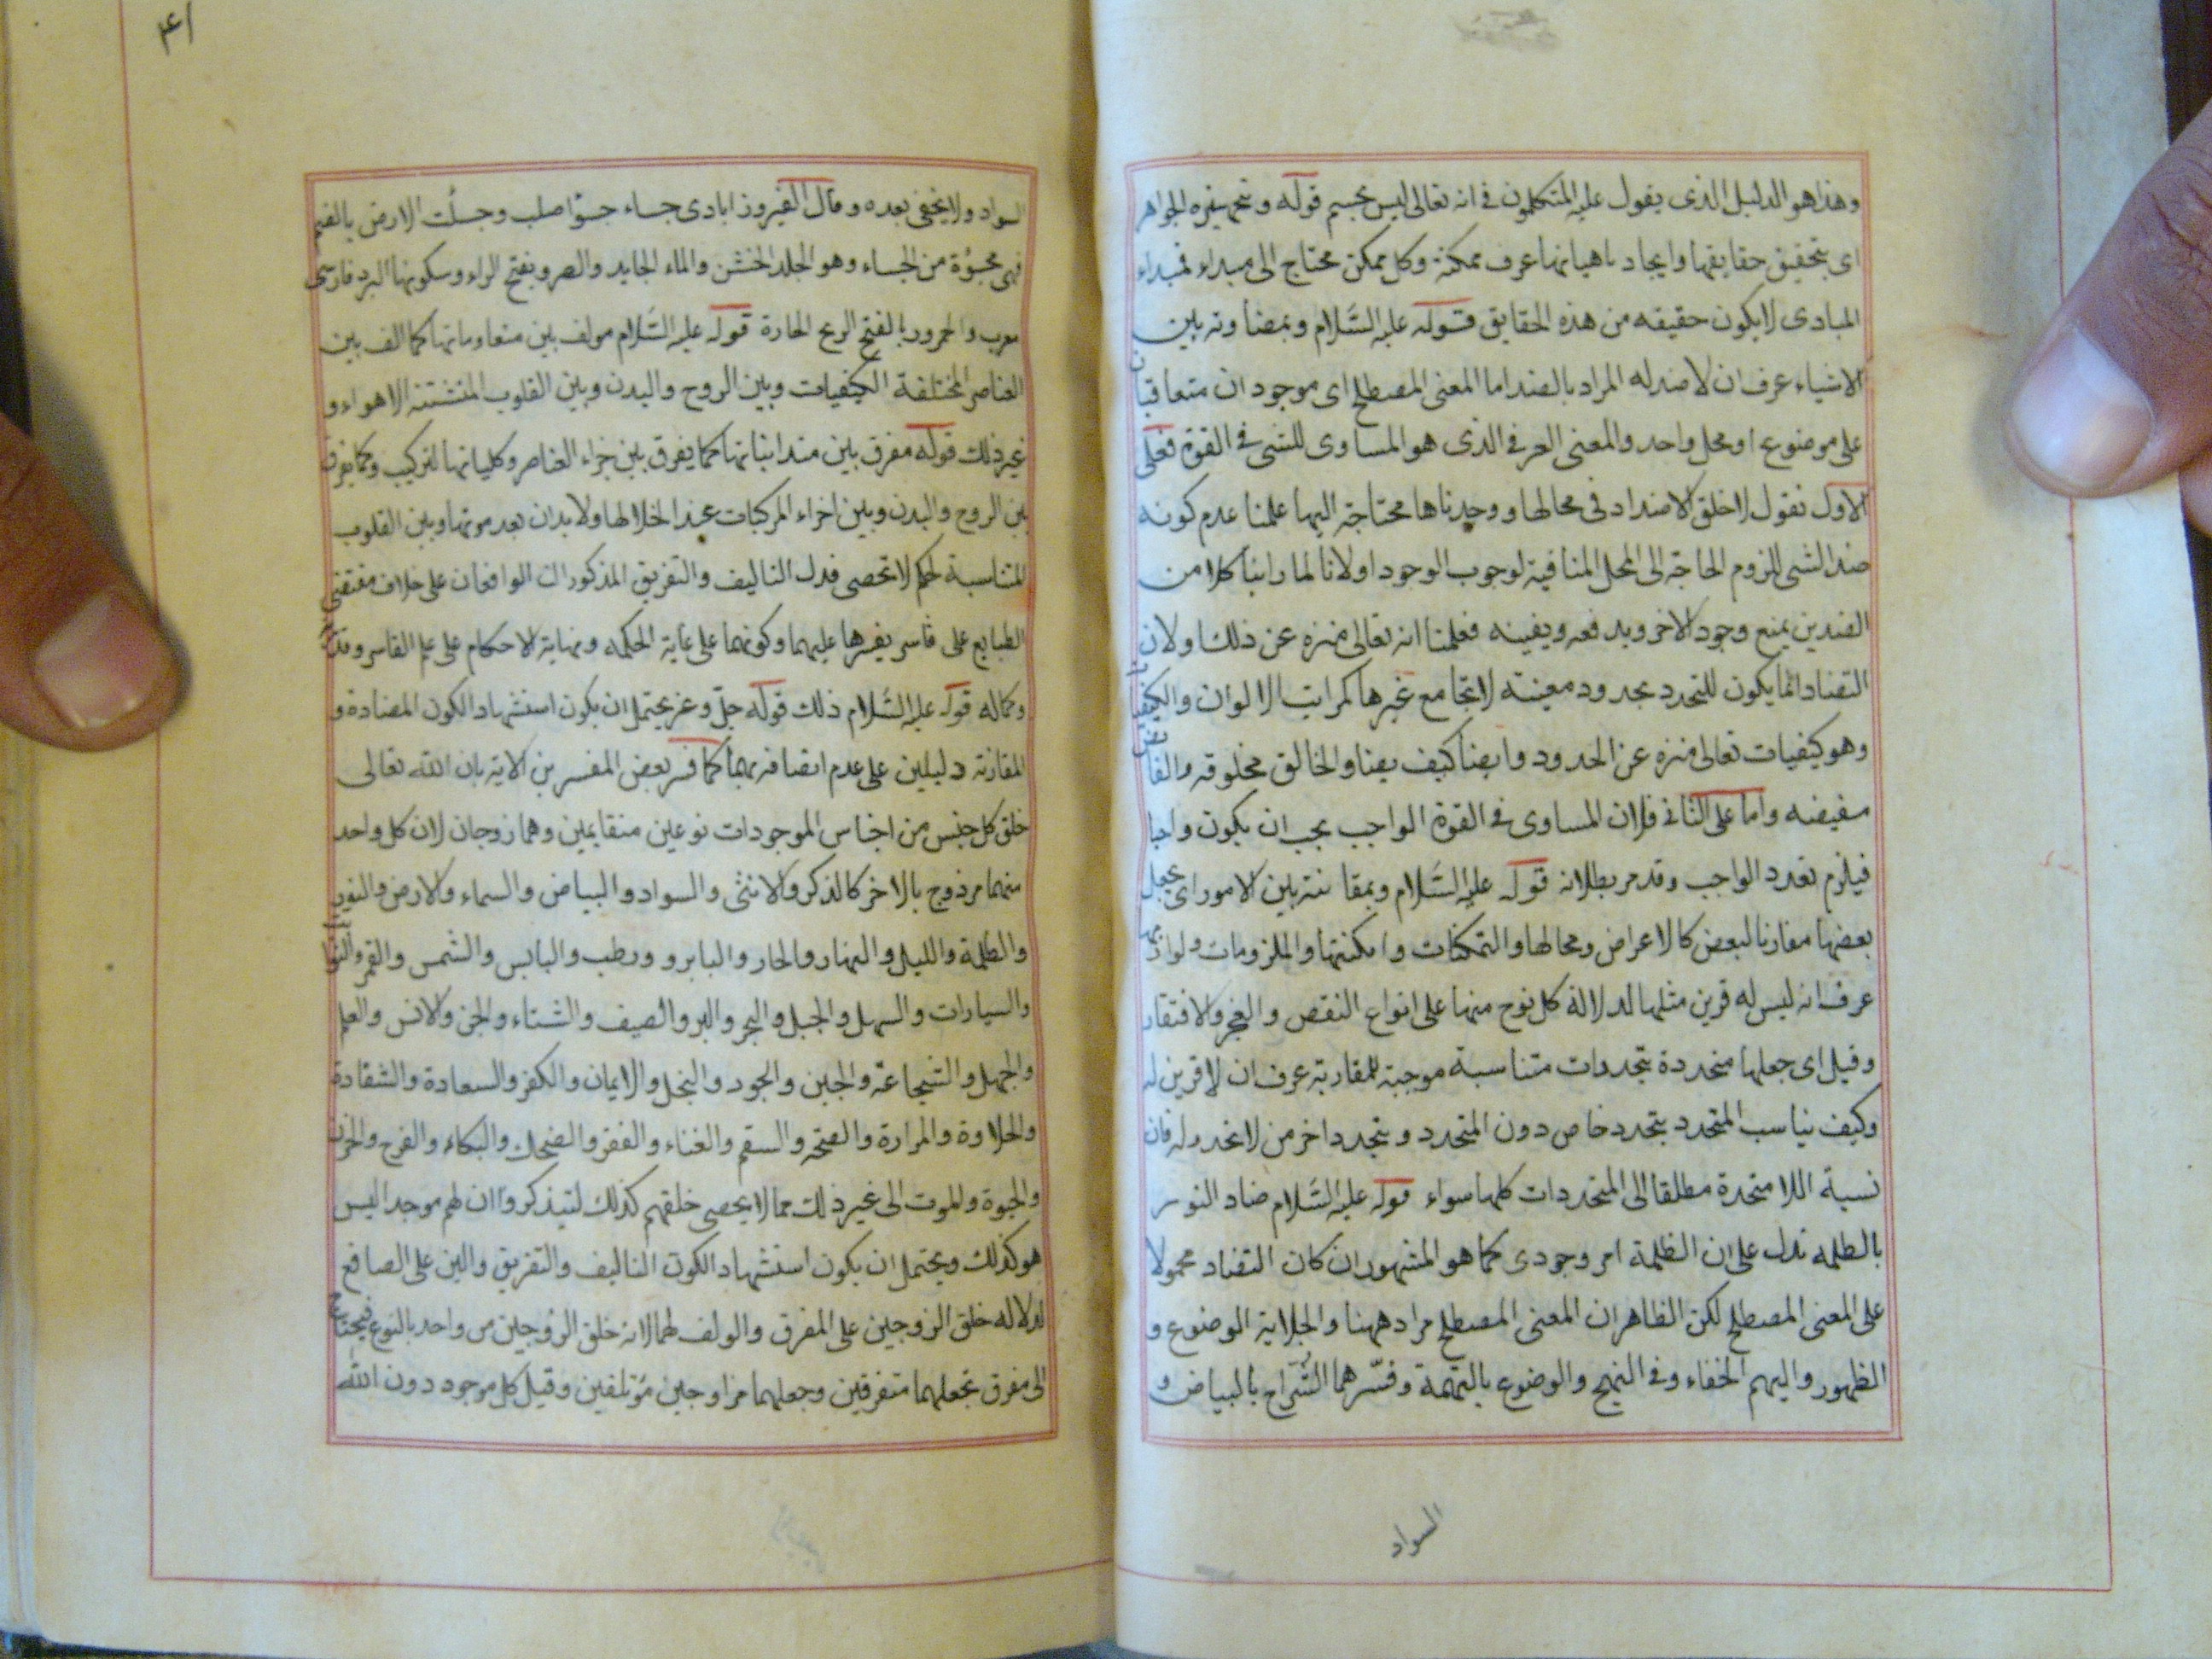 وهذا هو الدليل الذى يقول عليه المتكلمون فى انه تعالى ليس بجسم قوله وبتجهيزه الجواهر
اى بتحقيق حقايقها وايجاد ماهياتها عرف ممكنة وكل ممكن محتاج الى مبداء فمبداء
المبادى لا يكون حقيقه من هذه الحقايق قوله عليه السلام وبمضاوته بين
الاشياء عرف ان لا ضد له المراد بالضد اما المعنى المصطلح اى موجودان متعاقبان
على موضوع او محل واحد والمعنى العرفى الذى هو المساوى للشى فى القوة فعلى
الاول نقول لا خلق الاضداد فى محالها ووجدناها محتاجة اليها علمنا عدم كونه
ضد الشى للزوم الحاجة الى المحل المنافية لوجوب الوجود اولانا لما راينا كلا من
الضدين يمنع وجود الاخر ويدفعه ويفينه فعلمنا انه تعالى منزه عن ذلك اولان
التضاد انما يكون للتحدد بحدود معينة لا تجامع غيرها كمراتب الالوان والكيفيات
وهو كيفيات تعالى منزه عن الحدود وايضا كيف يضاو الخالق مخلوقه والفايض
مفيضه واما على الثانى فلان المساوى فى القوة الواجب يجب ان يكون واجبا
فيلزم تعدد الواجب وقد مر بطلانه قوله عليه السلام وبمقا ننة بين الامور اى بجعل
بعضها مقارنا لبعض كالاعراض ومحالها والتمكنات وامكنتها والملزومات ولوازمها
عرف انه ليس له قرين مثلها لدلالة كل نوح منها على انواع النقص والعجز والافتقار
وقيل اى جعلها متحددة بتحددات متناسبة موجبة للمقارنة عرف ان لا قرين له
وكيف يناسب المتحدد بتحدد خاص دون المتحدد وبتحدد اخر من لا تحدد له فان
نسبة اللا متحدة مطلقا الى المتحددات كلها سواء قوله عليه السلام ضاد النور
بالظلمه تدل على ان الظلمة امر وجودى كما هو المشهور ان كان التضاد محمولا
على المعنى المصطلح لكن الظاهر ان المعنى المصطلح مراد ههنا والجلاية الوضوع و
الظهور واليهم الخفاء وفى النهج والوضوع بالبهمة وفسرهما الشراح بالبياض و
السواد
۴۱
السواد ولا يخفى بعده وقال الفيروزابادى جساء جسوا صلب وجسأت الارض بالضم
فهى مجسؤة من الجساء وهو الجلد الخشن والماء الجايد والصرو بفتح الراء وسكونها البرد فارسى
معرب والحرور بالفتح الريح الحارة قوله عليه السلام مولف بين متعاوماتها كما الف بين
العناصر المختلفة الكيفيات وبين الروح والبدن وبين القلوب المتشتته الاهواء و
غير ذلك قوله مفرق بين متدانياتها كما يفرق بين جزاء العناصر وكلياتها للتركيب وكما يفرق
بين الروح والبدن وبين اجزاء المركبات عند انحلالها ولابدان بعد موتها وبين القلوب
المتناسبة لحكم لا تحصى فدل التاليف والتفريق المذكوران الواقعان على خلاف مقتضى
الطبايع على قاسر يقسرها عليهما وكونهما على غاية الحكمه ونهاية الاحكام على علم القاسر وقدرته
وكماله قوله عليه السلام ذلك قوله جل وعز يحتمل ان يكون استشهاد الكون المضادة و
المقارنة دليلين على عدم اتصافه بهما كما فسر بعض المفسرين الاية بان الله تعالى
خلق كل جنس من اجناس الموجودات نوعين متقابلين وهما زوجان لان كل واحد
منهما مزدوج بالاخر كالذكر والانثى والسواد والبياض والسماء والارض والنور
والظلمة والليل والنهار والحار والبارد ورطب واليابس والشمس والقمر والثوابت
والسيارات والسهل والجبل والبحر والبر والصيف والشتاء والجن والانس والعلم
والجهل والشجاعة والجبن والجود والبخل والايمان والكفر والسعادة والشقادة
والحلاوة والمرارة والصحة والسقم والغناء والفقر والضحك والبكاء والفرح والحزن
والحيوة والموت الى غير ذلك مما لا يحصى خلقهم كذلك لتيذكروا ان لهم موجد اليس
هو كذلك ويحتمل ان يكون استشهاد الكون التاليف والتفريق والين على الصانع
لدلاله خلق الزوجين على المفرق والولف لهما لانه خلق الزوجين من واحد بالنوع فيحتاج
الى مفرق بجعلهما متفرقين وجعلهما مزاوجين مؤتلفين وقيل كل موجود دون الله